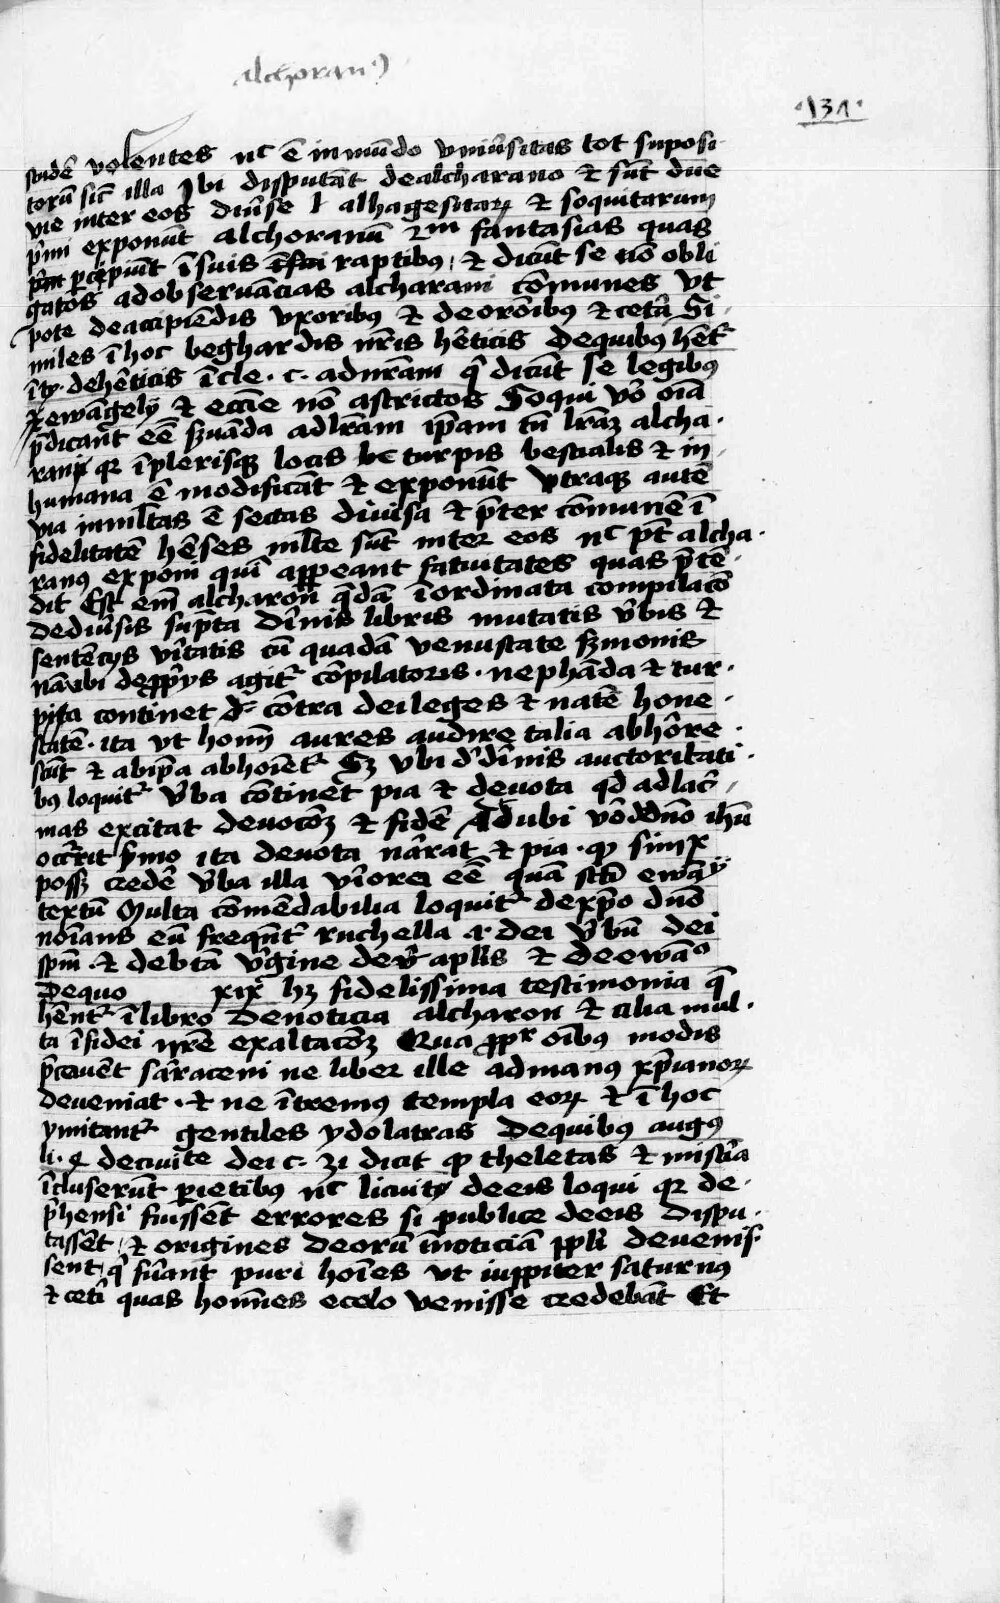 alchoranꝰ
·131·
studē volentes nc̄ ē in mūdo vniūsitas tot suposi
torū sic̄ illa Ibi disputāt de alcharano et sūt due
vie inter eos diūse l alhagesitaꝝ et soquitarum
p̄mi exponūt alchoranū 2m fantasias quas
ꝑcipiūt ī suis raptibꝰ et dicūt se nō obli
gatos ad observācias alcharani cōmunes vt
pote de accipiēdis vxoribꝰ et de orōnibꝰ et cetā Si
miles ī hoc beghardis nr̄is hēticis de quibꝰ hēt᷑
de hēticis ī cle. c. ad nr̄am q̄ dicūt se legibꝰ
ewāgelij et ecc̄ie nō astrictos Soqui vō oīa
p̄dicant eē ẜuāda ad lr̄am ip̄am tn̄ lr̄aꝫ alcha
rani qꝛ ī plerisqꝫ locis turpis bestialis et in
humana ē modificāt et exponūt vtraqꝫ autē
via in mltas ē sectas diuisa et p̄ter cōmunē ī
fidelitatē hēses mlte sūt inter eos nc̄ pt̄ alcha
ranꝰ exponi qui appeant fatuitates quas p̄tē
dit Est em̄ alcharon q̄dā īordinata compilacō
de diūsis sūpta dīnis libris mutatis v̄bis et
sentēcijs v̄itatis cū quadā venustate ẜmonis
nā vbi de ꝓprijs agit᷑ cōpilatoris nephāda et tur
pia continet cōtra dei leges et natē hone
statē ita vt homī aures audire talia abhōre
scūt et ab ip̄a abhoīent᷑ Sꝫ vbi dīnis auctoritati
bꝰ loquit᷑ v̄ba cōtinet pia et devota qd ad lac̄
mas excitat devocōꝫ et fidē Ad ubi vō d dn̄o ihū
occrit ẜmo ita devota nārat et pia ꝙ simꝉ
possꝫ credē v̄ba illa v̄iora eē quā scti ewāij
textū Multa cōmēdabilia loquit᷑ de xp̄o dn̄o
noīans eū freqn̄t᷑ ruchella .i. dei v̄bū dei
spm̄ et de btā v̄gine de aplis et de ewāo
De quo xix hꝫ fidelissima testimonia q̄
hēnt᷑ ī libro de noticia alcharon et alia mul
ta ī fidei nr̄e exaltacōꝫ Qua ꝓpt᷑ oībꝰ modis
p̄cavent sāraceni ne liber ille ad manꝰ xp̄ianoꝝ
deveniat et ne ītremꝰ templa eoꝝ et ī hoc
ymitant᷑ gentiles ydolatras De quibꝰ augꝰ
li. 4 de civite dei c. 31 dicit ꝙ theletas et mistīa
īcluserūt ꝑietibꝰ nc̄ licuit de eis loqui qꝛ de
p̄hensi fuissēt errores si publice de eis dispu
tassēt et origines deorū ī noticiā ppli devenis
sent q̄ fūant puri hoīes vt iuppiter saturnꝰ
et cetī quas homīnes e celo venisse credebāt Et